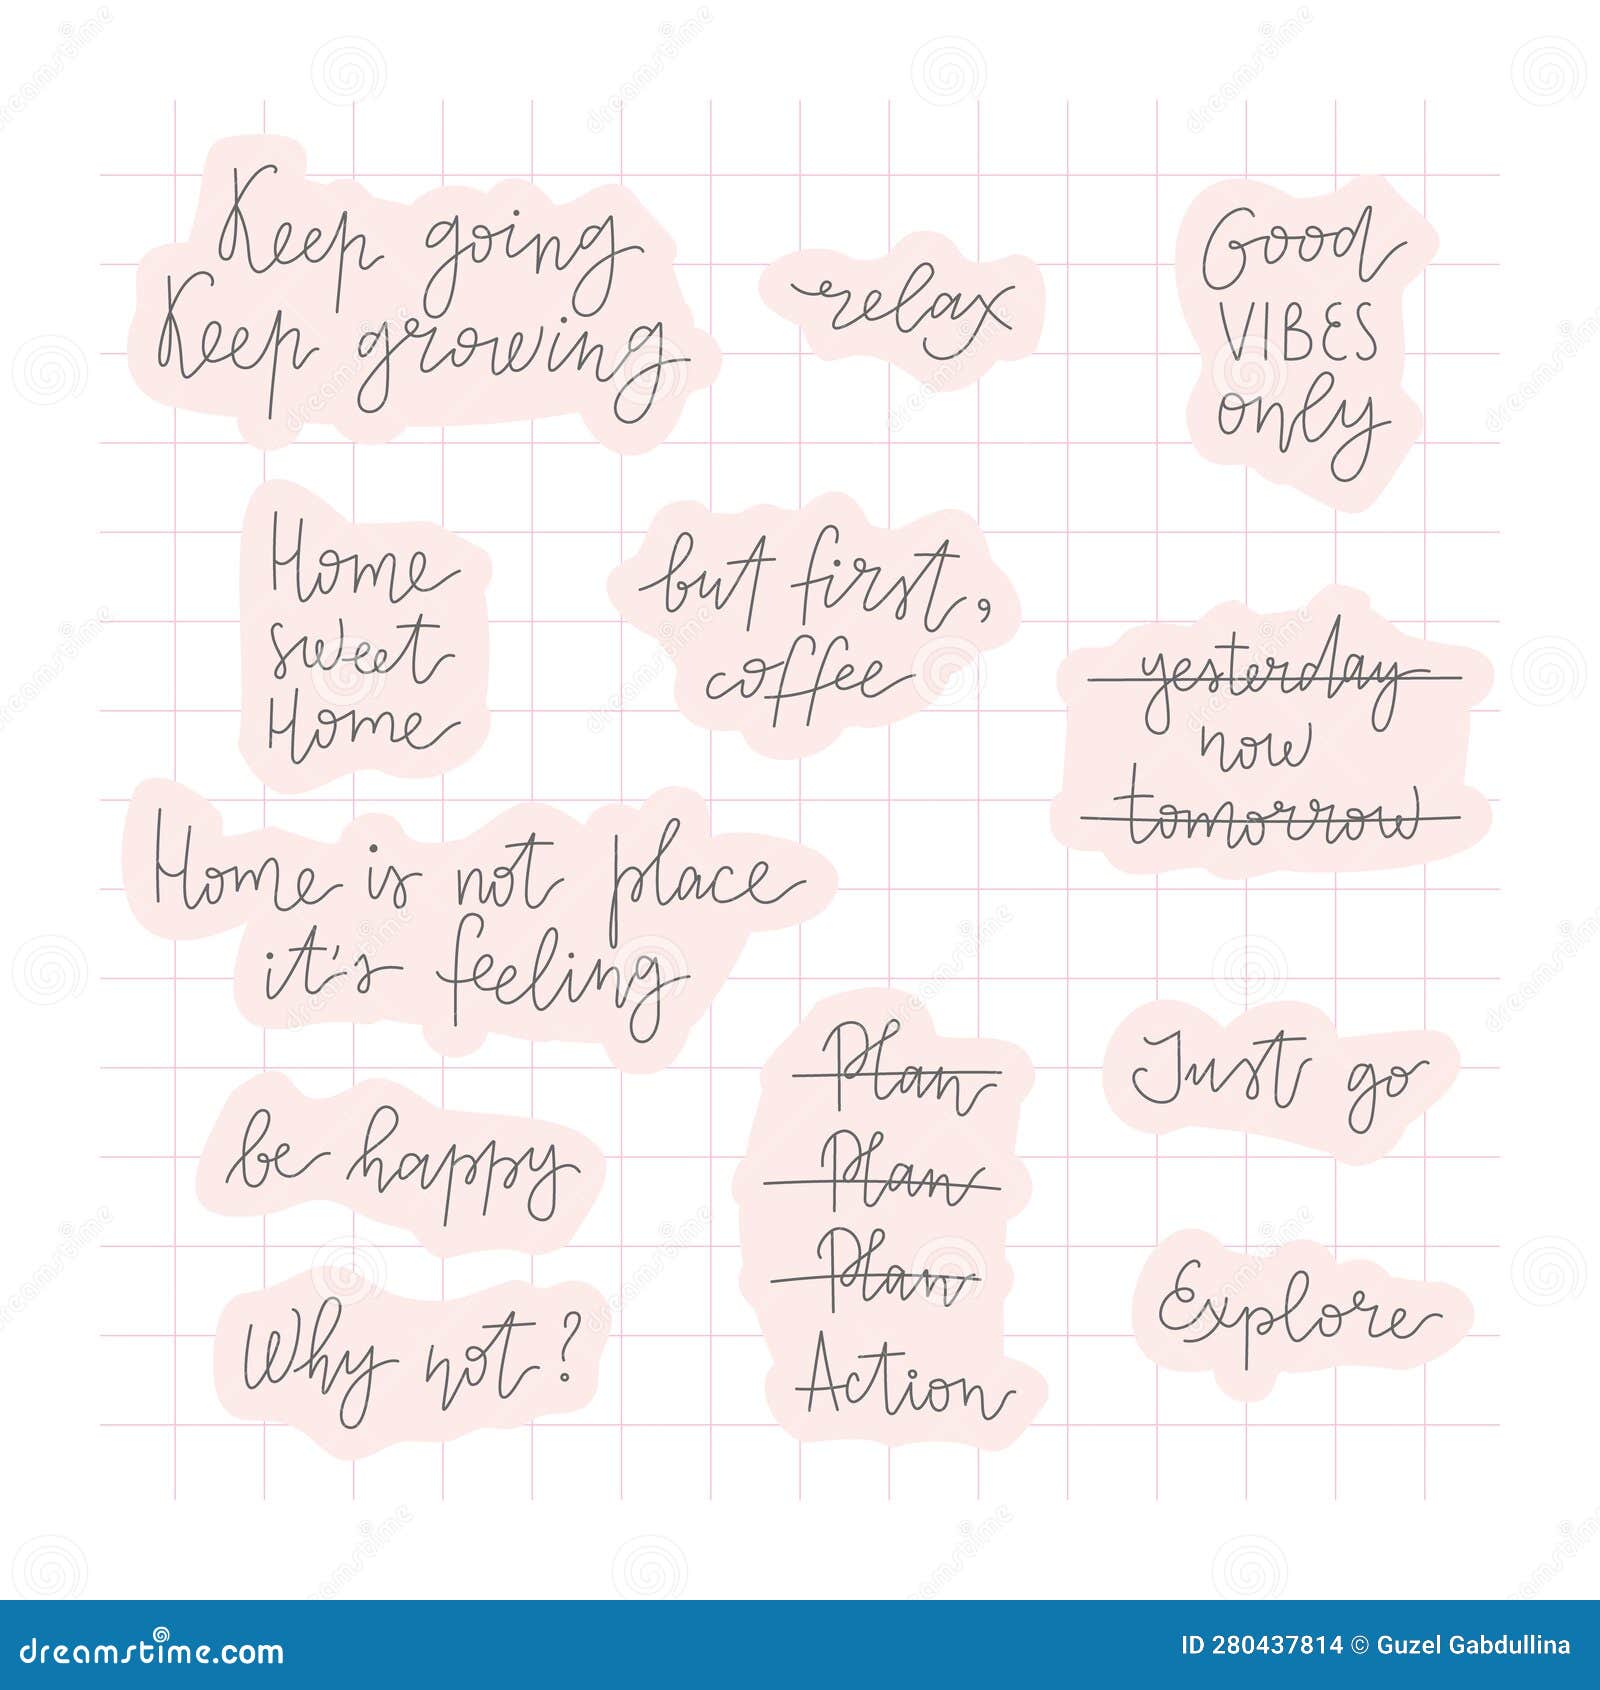 Keep going
Keep growing
relax
Good
VIBES
only
Home
sweet
Home
but first,
coffee
yesterday
now
tomorrow
Home is not place
it's feeling
Plan
Plan
Plan
Action
Just go
be happy
Explore
Why not?
dreamstime.com
ID 280437814 © Guzel Gabdullina